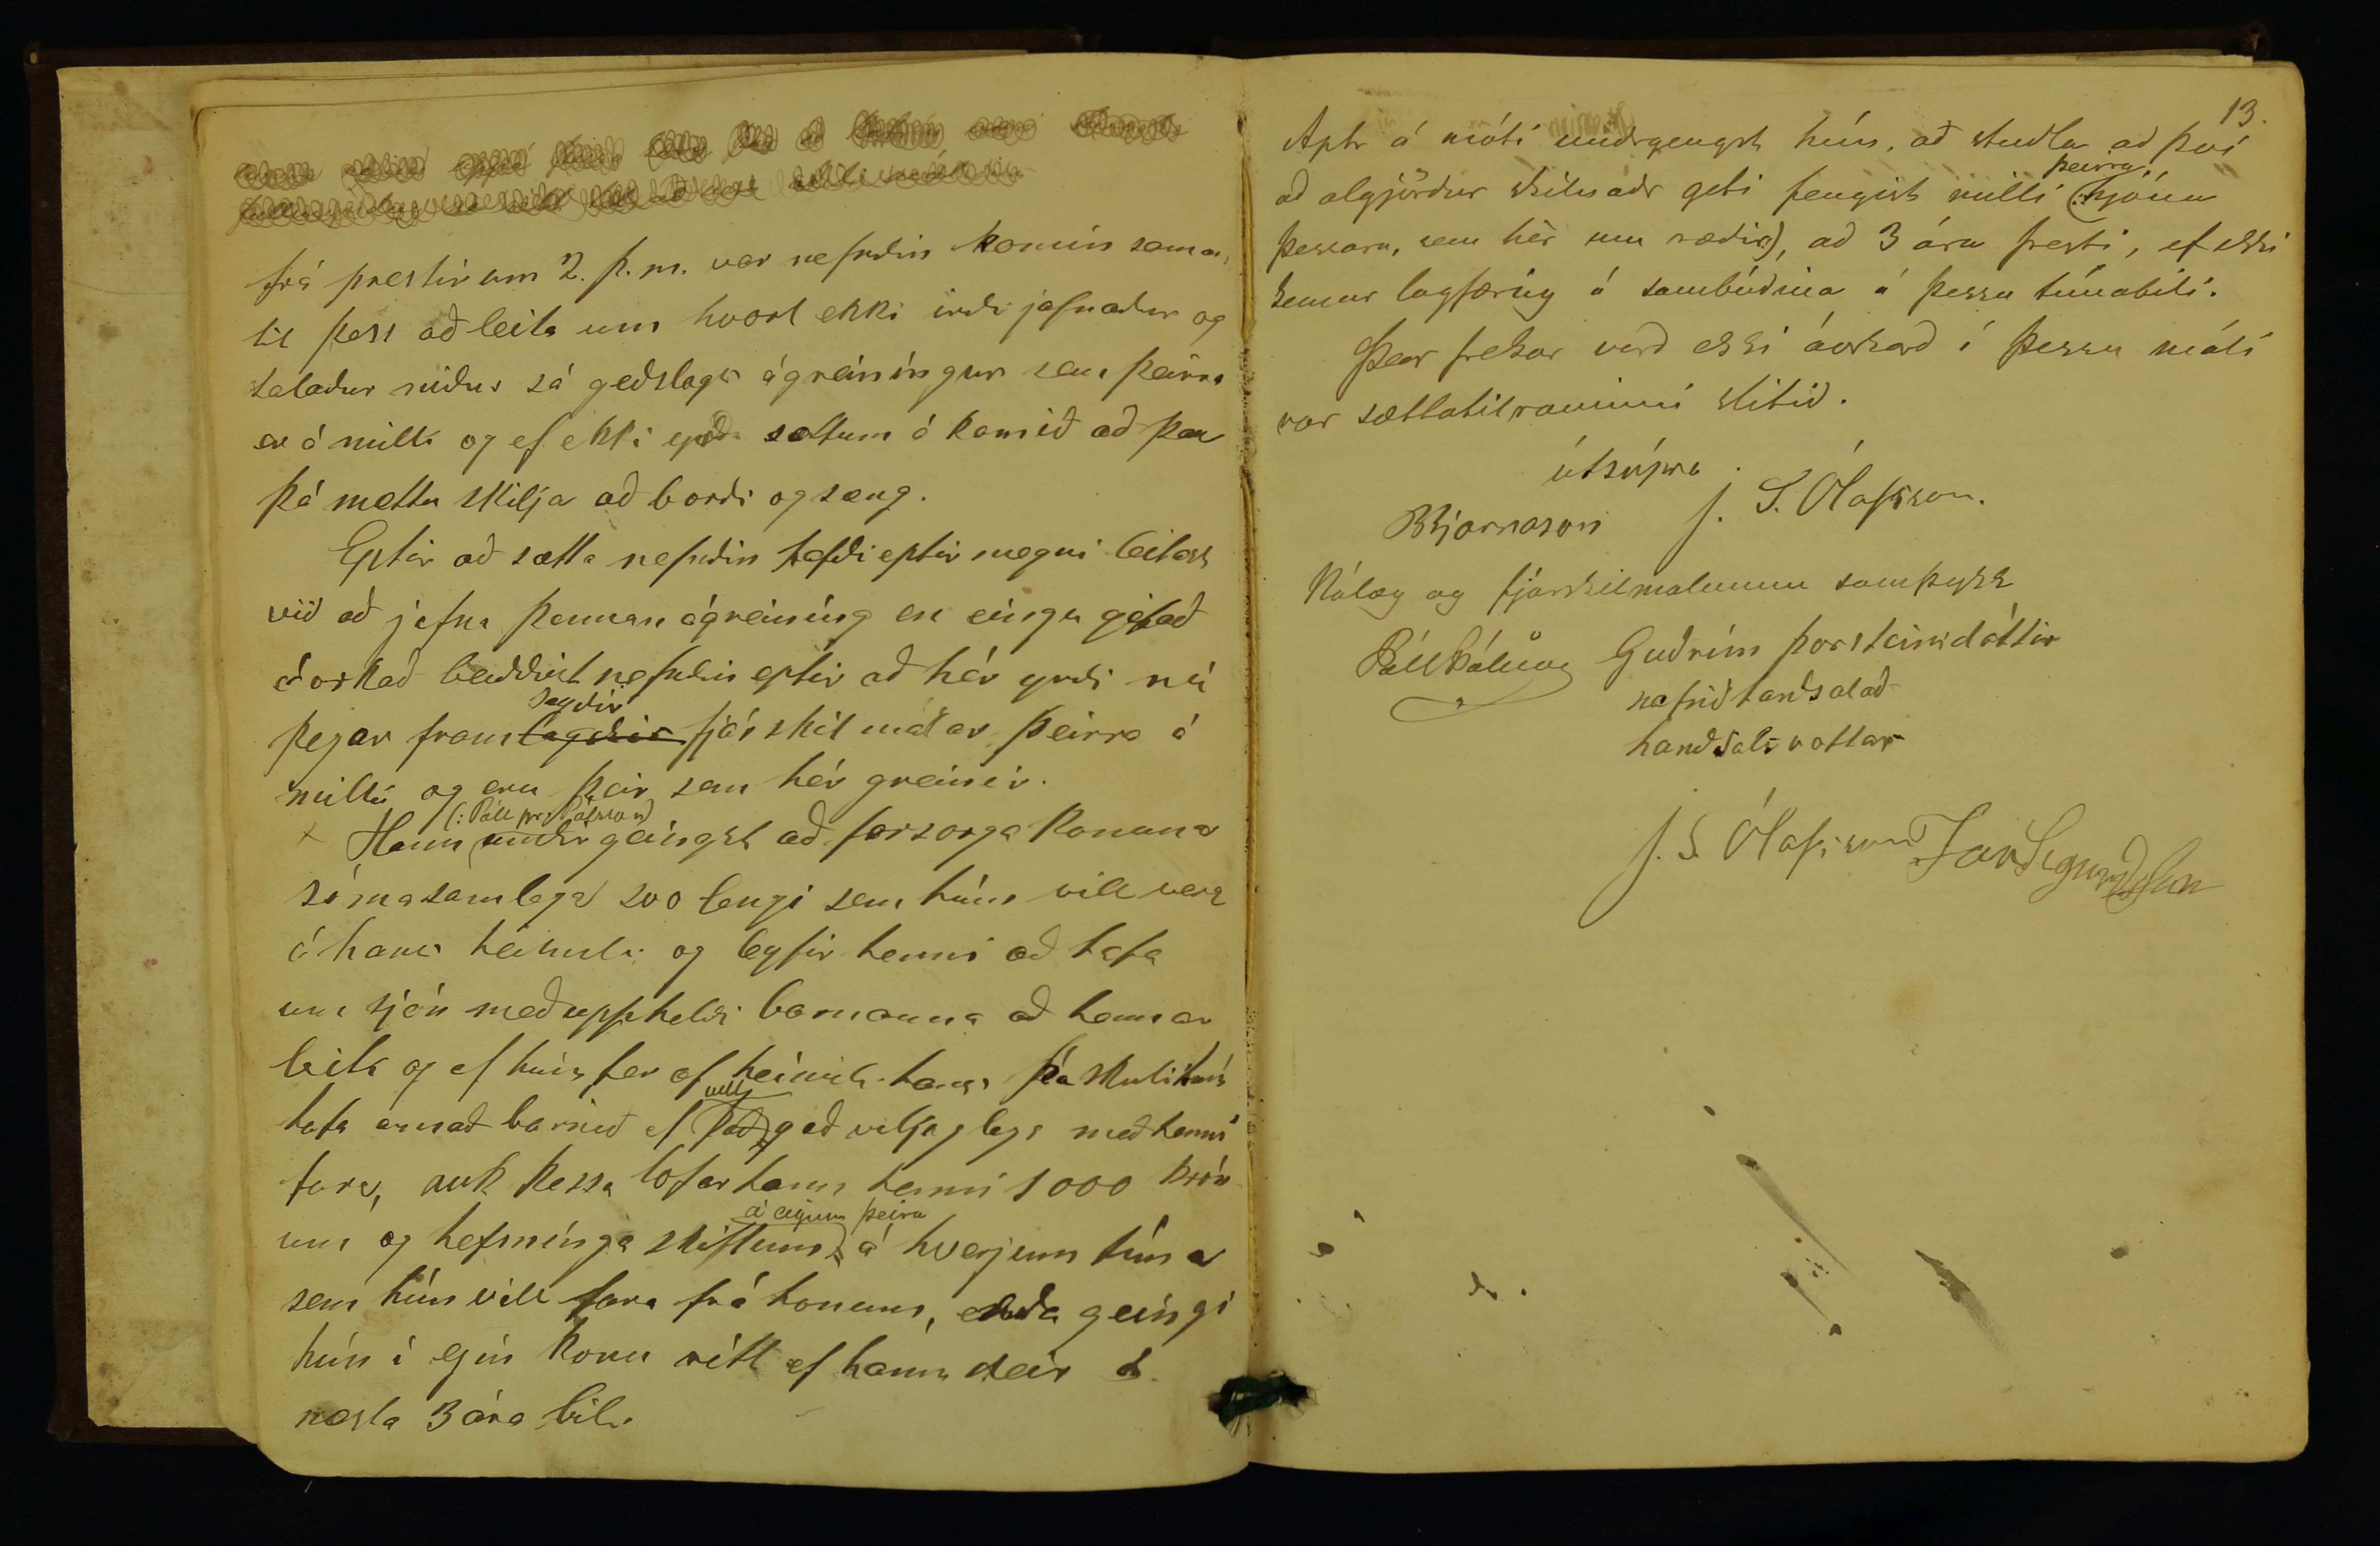 frá prestinum 2. þ.m. var nefndin komin saman,
til þess að leita um hvort ekki irði jafnaður og
talaður niður sá geðslags ágreiníngur sem þeirra
er á milli og ef ekki yrði sættum á komið að þau
þá mættu skilja að borði og sæng.
Eptir að sætta nefndin hafði eptir megni leitast
við að jafna þennan ágreiníng en eingu gétað
áorkað beiddist nefndin eptir að hér yrði nú
þegar fram lagðir sagðir fjárskilmálar þeirra á
milli og eru þeir sem hér greinir.
(: Páll pr. Pálsson)
× Hann undir geingst að forsorga konuna
sómasamlega svo lengi sem hún vill vera
á hans heimili og leyfir henni að hafa
um sjón með uppheldi barnanna að hennar
leiti og ef hún fer af heimili hans þá skuli hún
hafa annað barnið ef það vill góðviljuglega með henni
fara, auk þessa lofar hann henni 1000 krón
um og helmínga skiftum á eigum þeira á hverjum tíma
sem hún vill fara frá honum, enda geingi
hún í eign konu rétt ef hann deir á
næsta 3 ára bili.
13.
Aptr á móti undrgengst hún, að stuðla að því
að algjörður skilnaðr geti fengist milli (: hjóna þeirra,
þessara, sem hér um ræðir), að 3 ára fresti, ef ekki
kemur lagfæring á sambúðina á þessu tímabili.
Þar frekar varð ekki áorkað í þessu máli
var sættatilrauninni slitið.
útsupra
BBjarnason J. S. Ólafsson.
Nálæg og fjárskilmalunum samþykk
Páll Pálsson Guðrún þorsteinsdóttir
nafnið handsalað
handsals vottar
J. S. Ólafsson Jón Sigurðsson